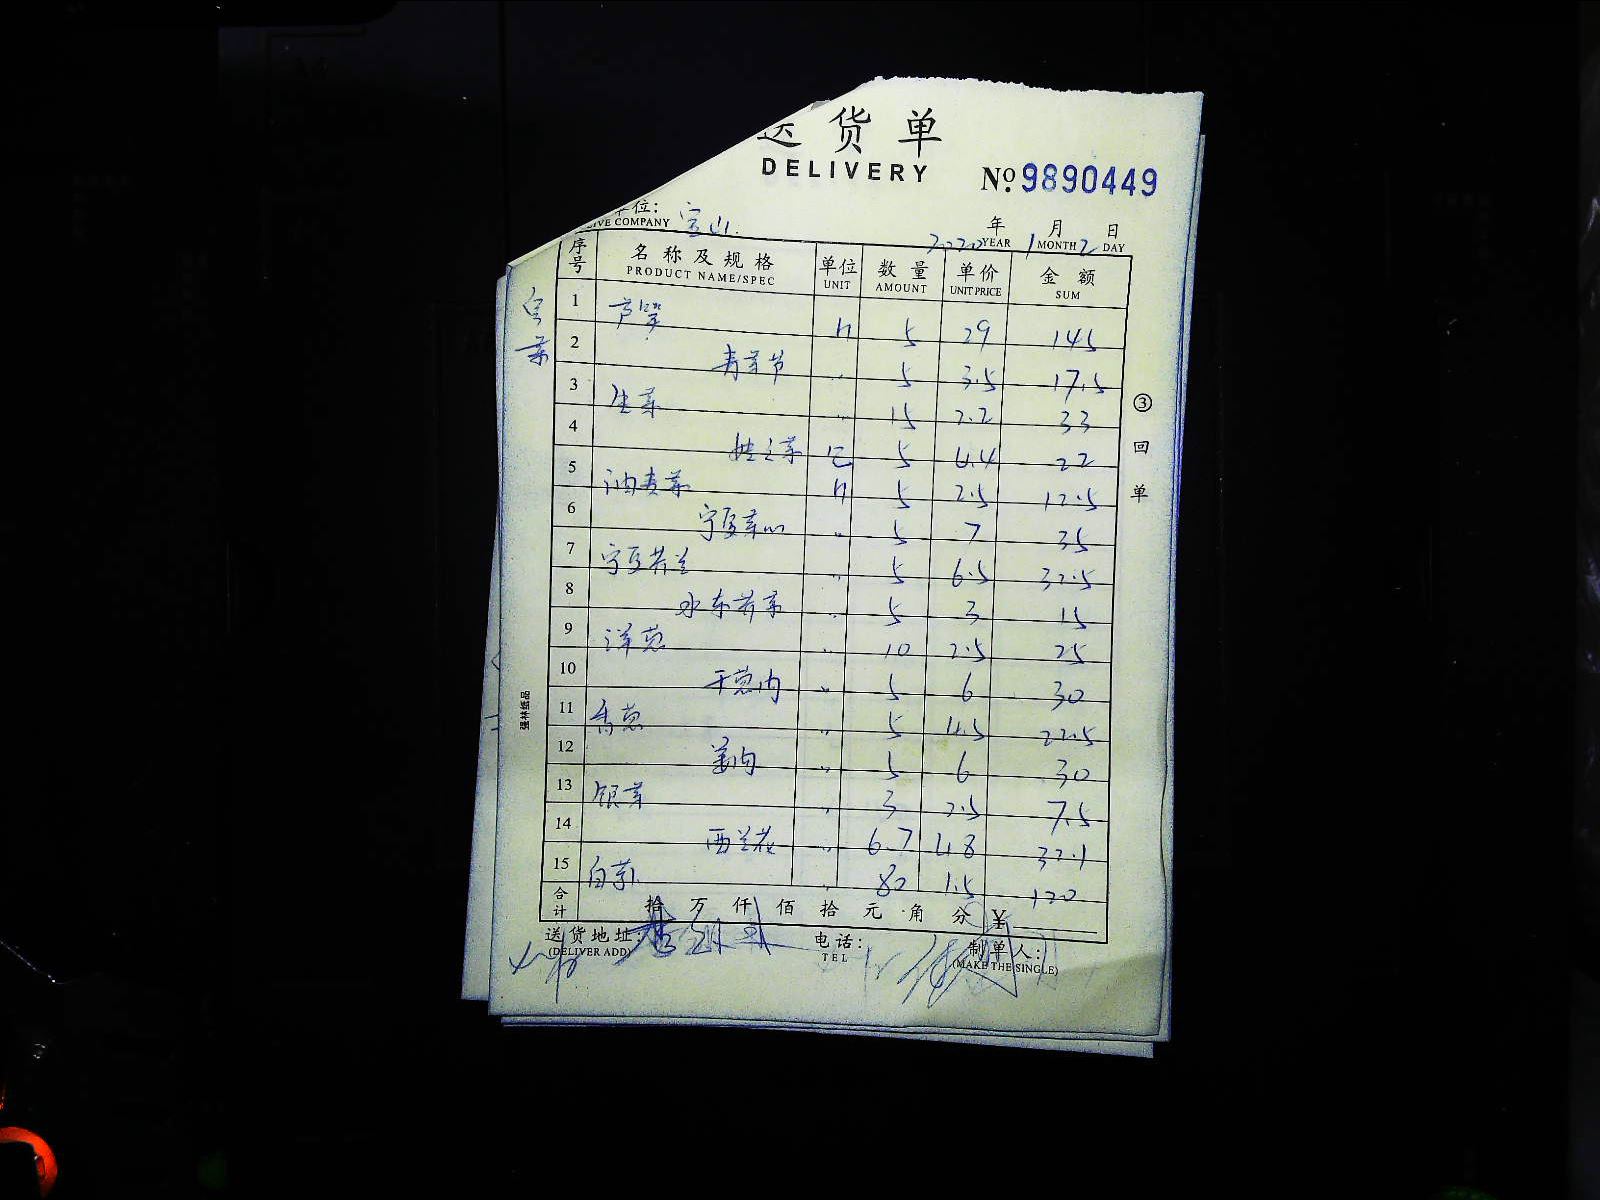 送货单
DELIVERY
№ 9890449
单位: 宝山
IVE COMPANY
2020 年 1 月 2 日
YEAR MONTH DAY
序号 名称及规格 单位 数量 单价 金额
PRODUCT NAME/SPEC UNIT AMOUNT UNIT PRICE SUM
1 芦笋 斤 5 29 145
2 青菜节 〃 5 3.5 17.5
3 生菜 〃 15 2.2 33
4 娃娃菜 包 5 4.4 22
5 油麦菜 斤 5 2.5 12.5
6 宁夏菜心 〃 5 7 35
7 宁夏芥兰 〃 5 6.5 32.5
8 水东芥菜 〃 5 3 15
9 洋葱 〃 10 2.5 25
10 干葱肉 〃 5 6 30
11 香葱 〃 5 4.5 22.5
12 姜肉 〃 5 6 30
13 银芽 〃 3 2.5 7.5
14 西兰花 〃 6.7 4.8 32.1
15 白萝卜 〃 80 1.5 120
合计 拾 万 仟 佰 拾 元 角 分 ¥
送货地址: 电话: 制单人:
(DELIVER ADD) TEL (MAKE THE SINGLE)
③ 回单
强林纸品